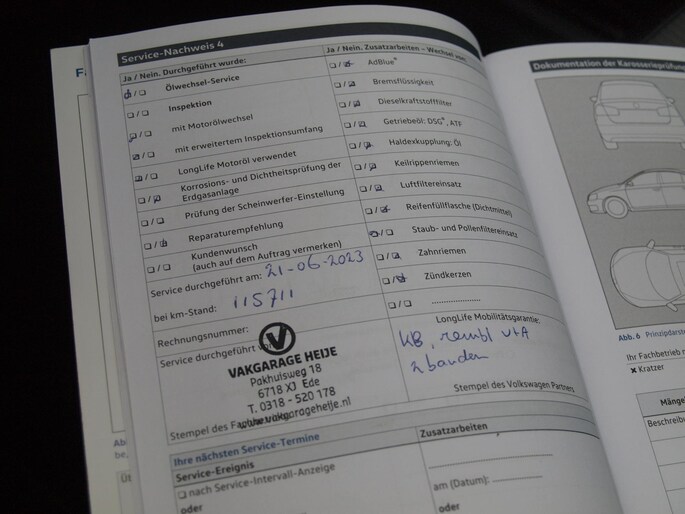 Service-Nachweis 4
Ja / Nein. Durchgeführt wurde:
Ölwechsel-Service
Inspektion
mit Motorölwechsel
mit erweitertem Inspektionsumfang
LongLife Motoröl verwendet
Korrosions- und Dichtheitsprüfung der
Erdgasanlage
Prüfung der Scheinwerfer-Einstellung
Reparaturempfehlung
Kundenwunsch
(auch auf dem Auftrag vermerken)
Service durchgeführt am: 21-06-2023
bei km-Stand: 115711
Rechnungsnummer:
Service durchgeführt von:
VAKGARAGE HEIJE
Pakhuisweg 18
6718 XJ Ede
T. 0318 - 520 178
www.vakgarageheije.nl
Stempel des
Ja / Nein. Zusatzarbeiten – Wechsel von:
AdBlue®
Bremsflüssigkeit
Dieselkraftstofffilter
Getriebeöl: DSG®, ATF
Haldexkupplung: Öl
Keilrippenriemen
Luftfiltereinsatz
Reifenfüllflasche (Dichtmittel)
Staub- und Pollenfiltereinsatz
Zahnriemen
Zündkerzen
LongLife Mobilitätsgarantie:
KB, rembl V+A
2 banden
Stempel des Volkswagen Partners
Ihre nächsten Service-Termine
Service-Ereignis
nach Service-Intervall-Anzeige
oder
Zusatzarbeiten
am (Datum):
oder
Dokumentation der Karosserieprüfun
Abb. 6 Prinzipdarst
Ihr Fachbetrieb
× Kratzer
Mänge
Beschreibu